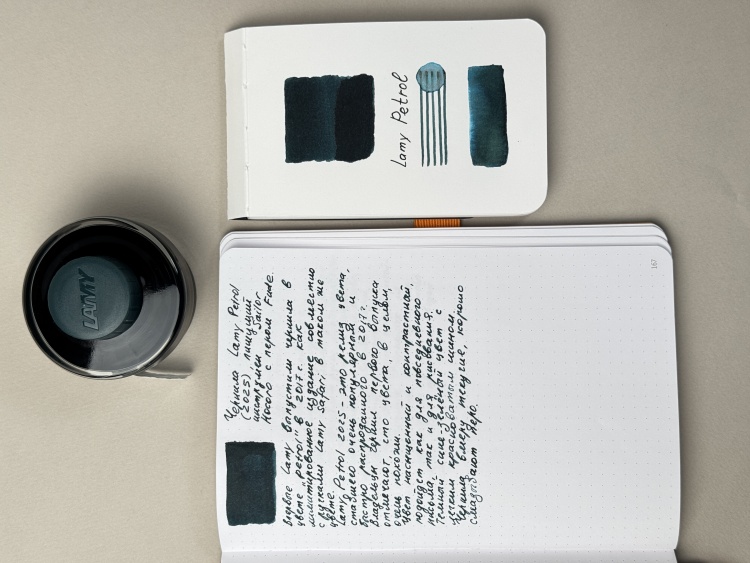 LAMY
Lamy Petrol
167
Чернила Lamy Petrol
(2025), пишущий
инструмент Sailor
Hocoro с пером Fude.
Впервые Lamy выпустили чернила в
цвете "petrol" в 2017 г. как
лимитированное издание совместно
с ручками Lamy Safari в таком же
цвете.
Lamy Petrol 2025 - это ремейк цвета,
ставшего очень популярным и
быстро распроданного в 2017 г.
Владельцы чернил первого выпуска
отмечают, что цвета, в целом,
очень похожи.
Цвет насыщенный и контрастный,
подойдёт как для повседневного
письма, так и для рисования.
Темный сине-зелёный цвет с
легким красноватым шином.
Чернила в меру текучие, хорошо
смазывают перо.